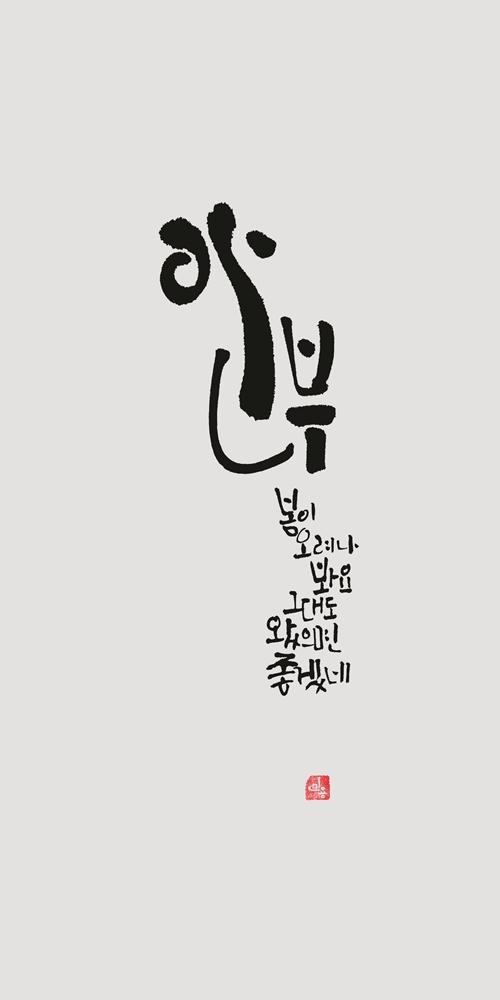 안부
봄이
오려나
봐요
그대도
왔으면
좋겠네